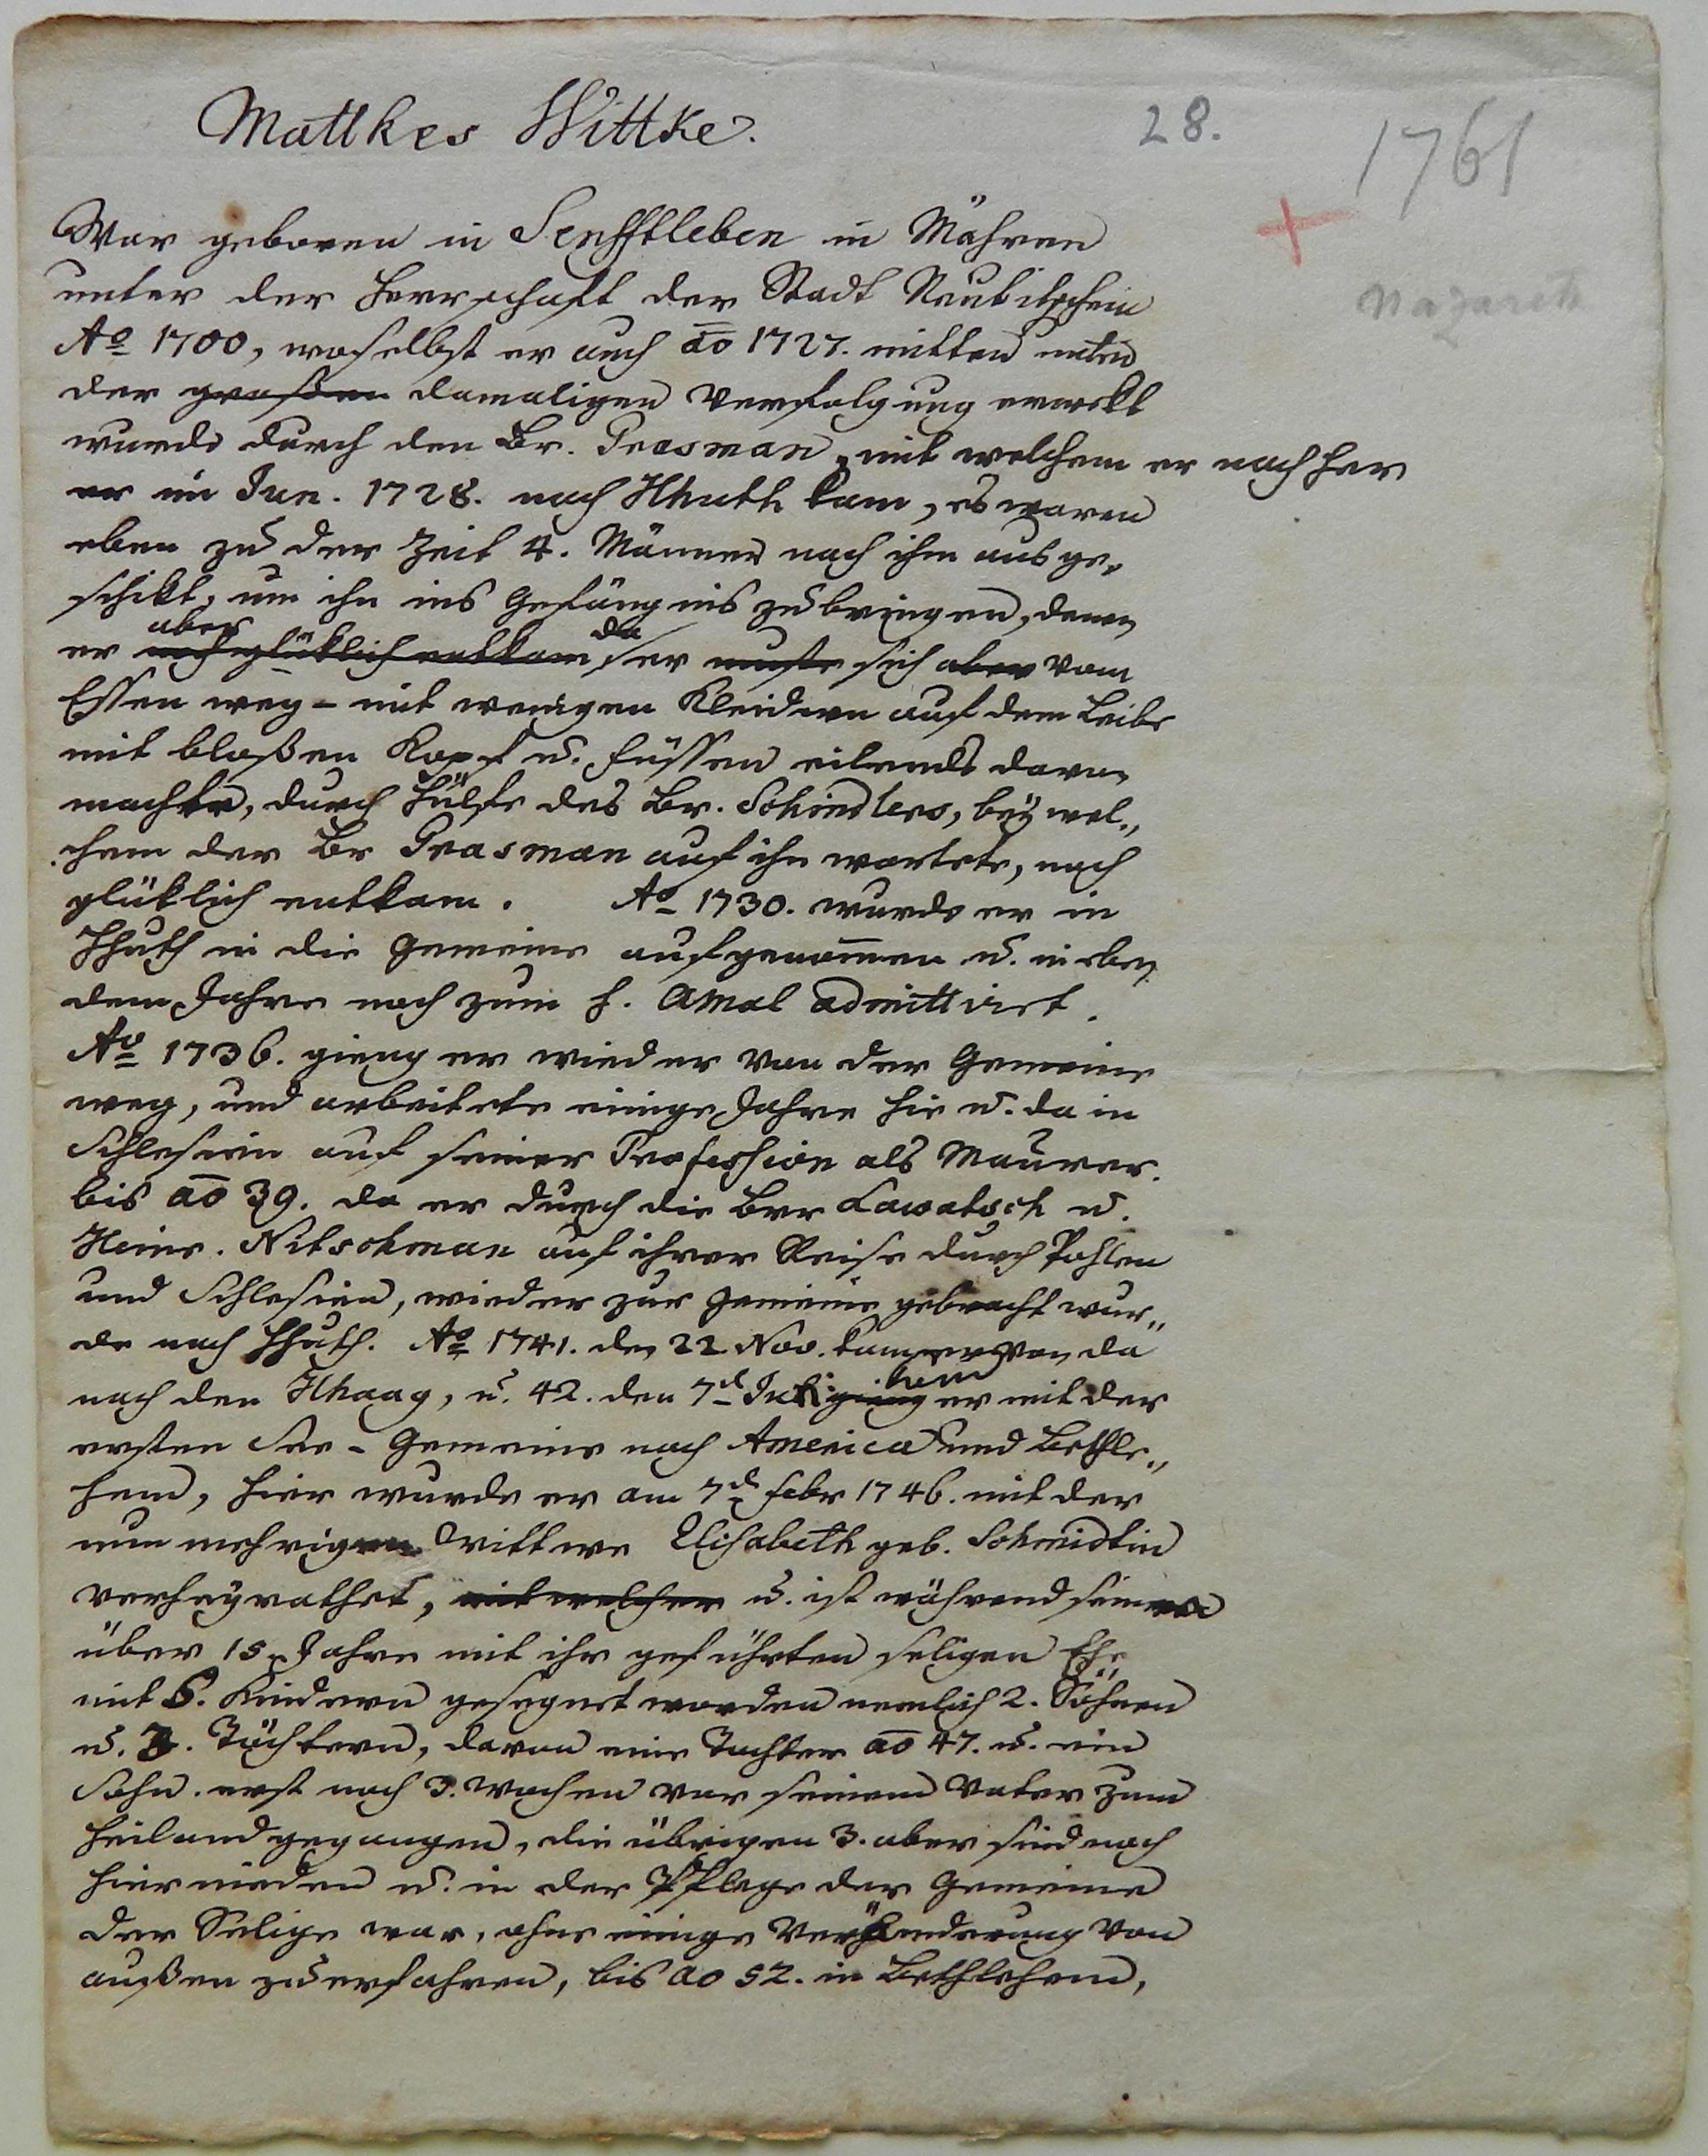 Matthes Wittke.
28.
1761
Nazareth
War geboren in Senfftleben in Mähren
unter der Herrschaft der Stadt Neutitschein
Ao 1700, woselbst er auch ao 1727. mitten unter
der großen damaligen Verfolgung erweckt
wurde durch den Br. Grasman, mit welchem er nachher
er im Jun. 1728. nach Hhuth kam, es waren
eben zu der Zeit 4. Männer nach ihm ausge„
schikt, um ihn ins Gefängnis zu bringen, denen
aber da
er noch glüklich entkam, er muste sich aber vom
Essen weg - mit wenigen Kleidern auf dem Leibe
mit bloßen Kopf u. Füssen eilends davon
machte, durch Hülfe des Br. Schindlers, bey wel„
chem der Br Grasman auf ihn wartete, noch
glüklich entkam. Ao 1730. wurde er in
Hhuth in die Gemeine aufgenommen u. in eben
dem Jahre noch zum h. Amal admittirt.
Ao 1736. gieng er wieder von der Gemeine
weg, und arbeitete einige Jahre hie u. da in
Schlesien auf seiner Profession als Maurer.
bis ao 39. da er durch die Brr Lawatsch u.
Heinr. Nitschman auf ihrer Reise durch Pohlen
und Schlesien, wieder zur Gemeine gebracht wur„
de nach Hhuth. Ao 1741. den 22 Nov. kam er von da
kam
nach den Hhaag, u. 42. den 7d gieng er mit der
ersten See-Gemeine nach America und Bethle„
hem, hier wurde er am 7d Febr 1746. mit der
nun mehrigen Wittwe Elisabeth geb. Schmidtin
verheyrathet, mit welcher u. ist während seiner
über 15. Jahre mit ihr geführten seligen Ehe
mit 5. Kindern gesegnet worden nemlich 2. Söhnen
u. 3. Töchtern, davon eine Tochter ao 47. u. ein
Sohn erst noch 3. Wochen vor seinem Vater zum
Heiland gegangen, die übrigen 3. aber sind noch
hiernieden u. in der Pflege der Gemeine
Der Selige war, ohne einige Veränderung von
außen zu erfahren, bis ao 52. in Bethlehem,